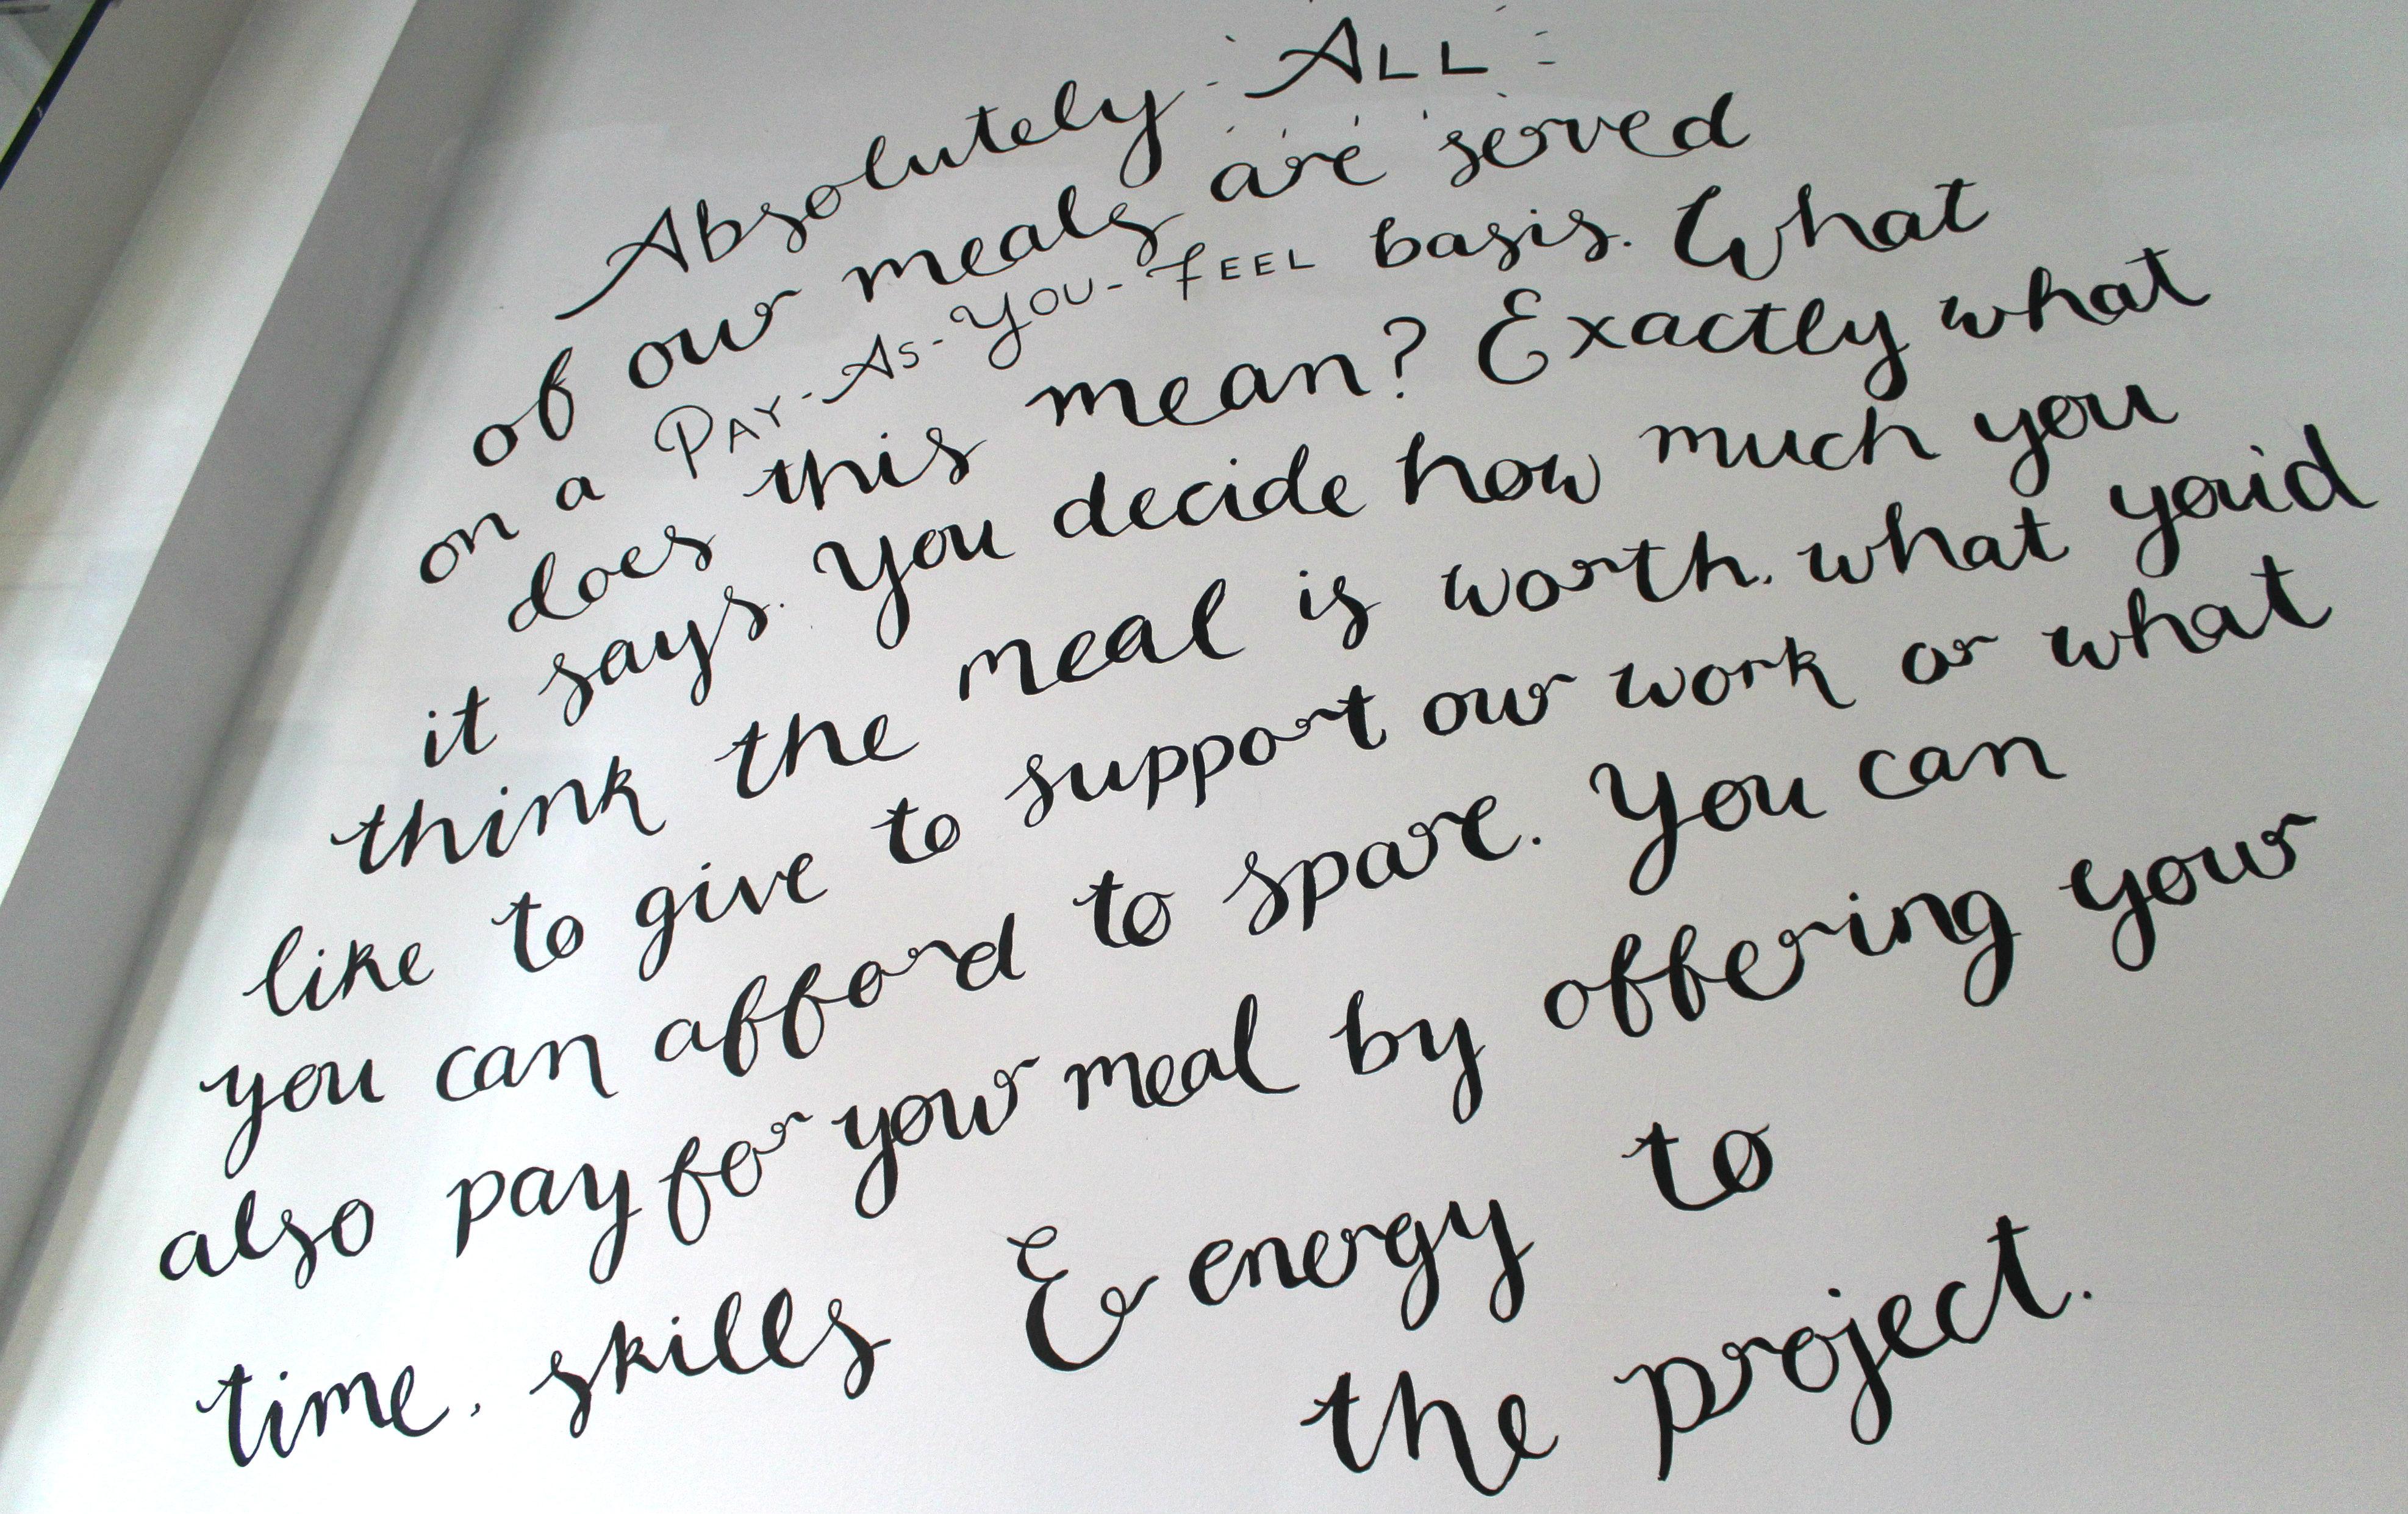 Absolutely ALL
of our meals are served
on a PAY-AS-YOU-FEEL basis. What
does this mean? Exactly what
it says. You decide how much you
think the meal is worth, what you'd
like to give to support our work or what
you can afford to spare. You can
also pay for your meal by offering your
time, skills & energy to
the project.